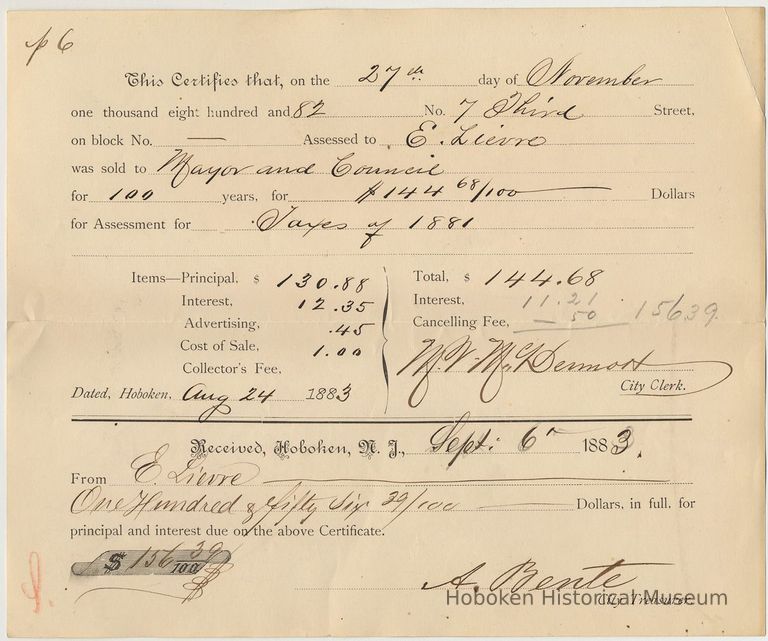 p 6
This Certifies that, on the 27th day of November
one thousand eight hundred and 82 No. 7 Third Street,
on block No. — Assessed to E. Lievre
was sold to Mayor and Council
for 100 years, for $144 68/100 Dollars
for Assessment for Taxes of 1881
Items—Principal, $ 130.88
Interest, 12.35
Advertising, .45
Cost of Sale, 1.00
Collector's Fee,
Dated, Hoboken, Aug 24 1883
Total, $ 144.68
Interest, 11.21
Cancelling Fee, — 50 156.39
McDermott
City Clerk.
Received, Hoboken, N. J., Sept: 6 1883.
From E. Lievre
One Hundred & fifty Six 39/100 — Dollars, in full, for
principal and interest due on the above Certificate.
$ 156 39/100
A. Bente
City Treasurer.
Hoboken Historical Museum